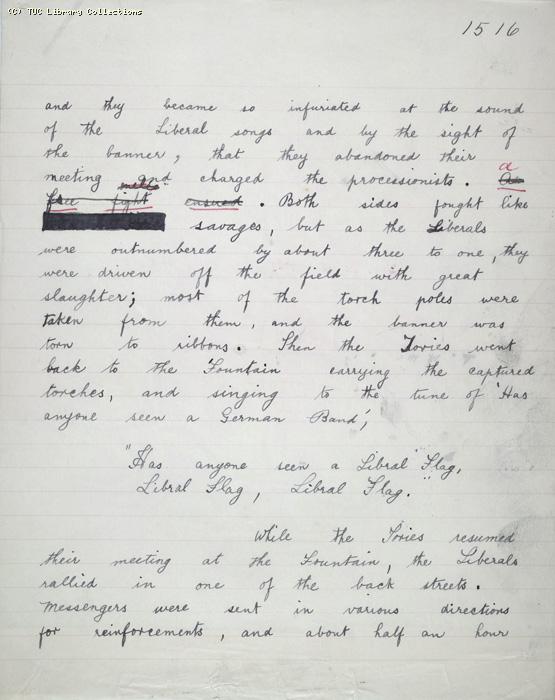 (C) TUC Library Collections
15 16
and they became so infuriated at the sound
of the Liberal songs and by the sight of
the banner, that they abandoned their
meeting and charged the processionists. a
free fight ensued. Both sides fought like
savages, but as the Liberals
were outnumbered by about three to one, they
were driven off the field with great
slaughter; most of the torch poles were
taken from them, and the banner was
torn to ribbons. Then the Tories went
back to the Fountain carrying the captured
torches, and singing to the tune of 'Has
anyone seen a German Band',
"Has anyone seen a Libral Flag,
Libral Flag, Libral Flag."
While the Tories resumed
their meeting at the Fountain, the Liberals
rallied in one of the back streets.
Messengers were sent in various directions
for reinforcements, and about half an hour